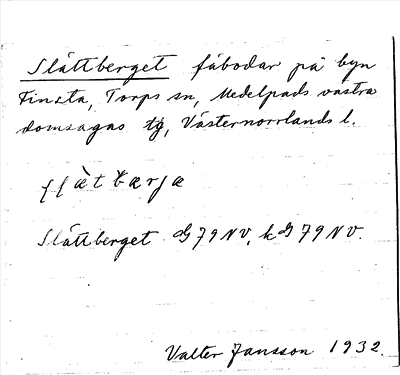 Slåttberget fäbodar på byn
Finsta, Torps sn, Medelpads västra
domsagas tg, Västernorrlands l.
Slåttberget G79NV, kG79NV.
Valter Jansson 1932.